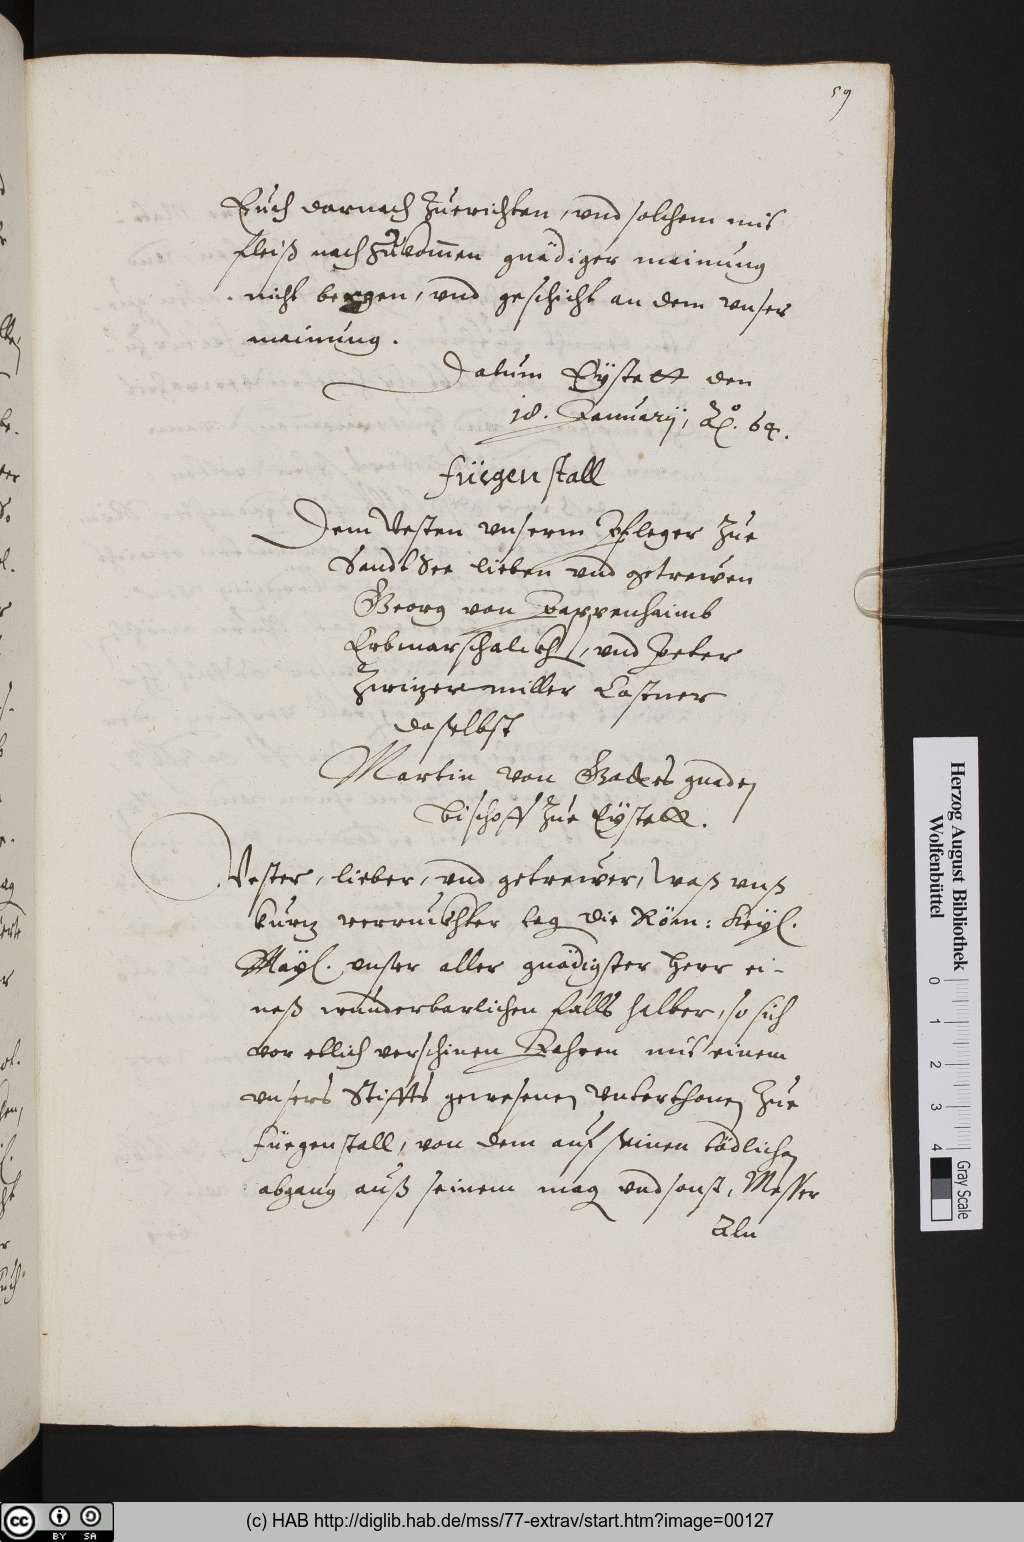 59
Euch darnach zuerichten, vnd solchem mit
fleiß nach zukom̄en gnädiger mainung
nicht bergen, vnd geschicht an dem vnser
mainung.
Datum Eystett den
18. Januarÿ, Aō. 64.
Füegenstall
Dem Vesten vnserm Pfleger zue
SandtSee lieben vnd getrewen
Georg von Pappenhaimb
Erbmarschalckh, vnd Peter
Zwinzermiller Castner
daselbst
Martin von Gottes gnaden
bischoff zue Eystett.
Vester, lieber, vnd getrewer, Waß vnß
kurtz verruckhter tag die Röm: Keÿs.
Maÿs. vnser aller gnädigster herr ei-
neß wunderbarlichen falls halber, so sich
vor etlich verschinen Jahren mit einem
vnsers Stiffts gewesenen Vnterthonen zue
Füegenstall, von dem auf seinen tödlichen
abgang auß seinem mag vnd sonst, Messer
Aln
Herzog August Bibliothek
Wolfenbüttel
0 1 2 3 4
Gray Scale
cc BY SA
(c) HAB http://diglib.hab.de/mss/77-extrav/start.htm?image=00127